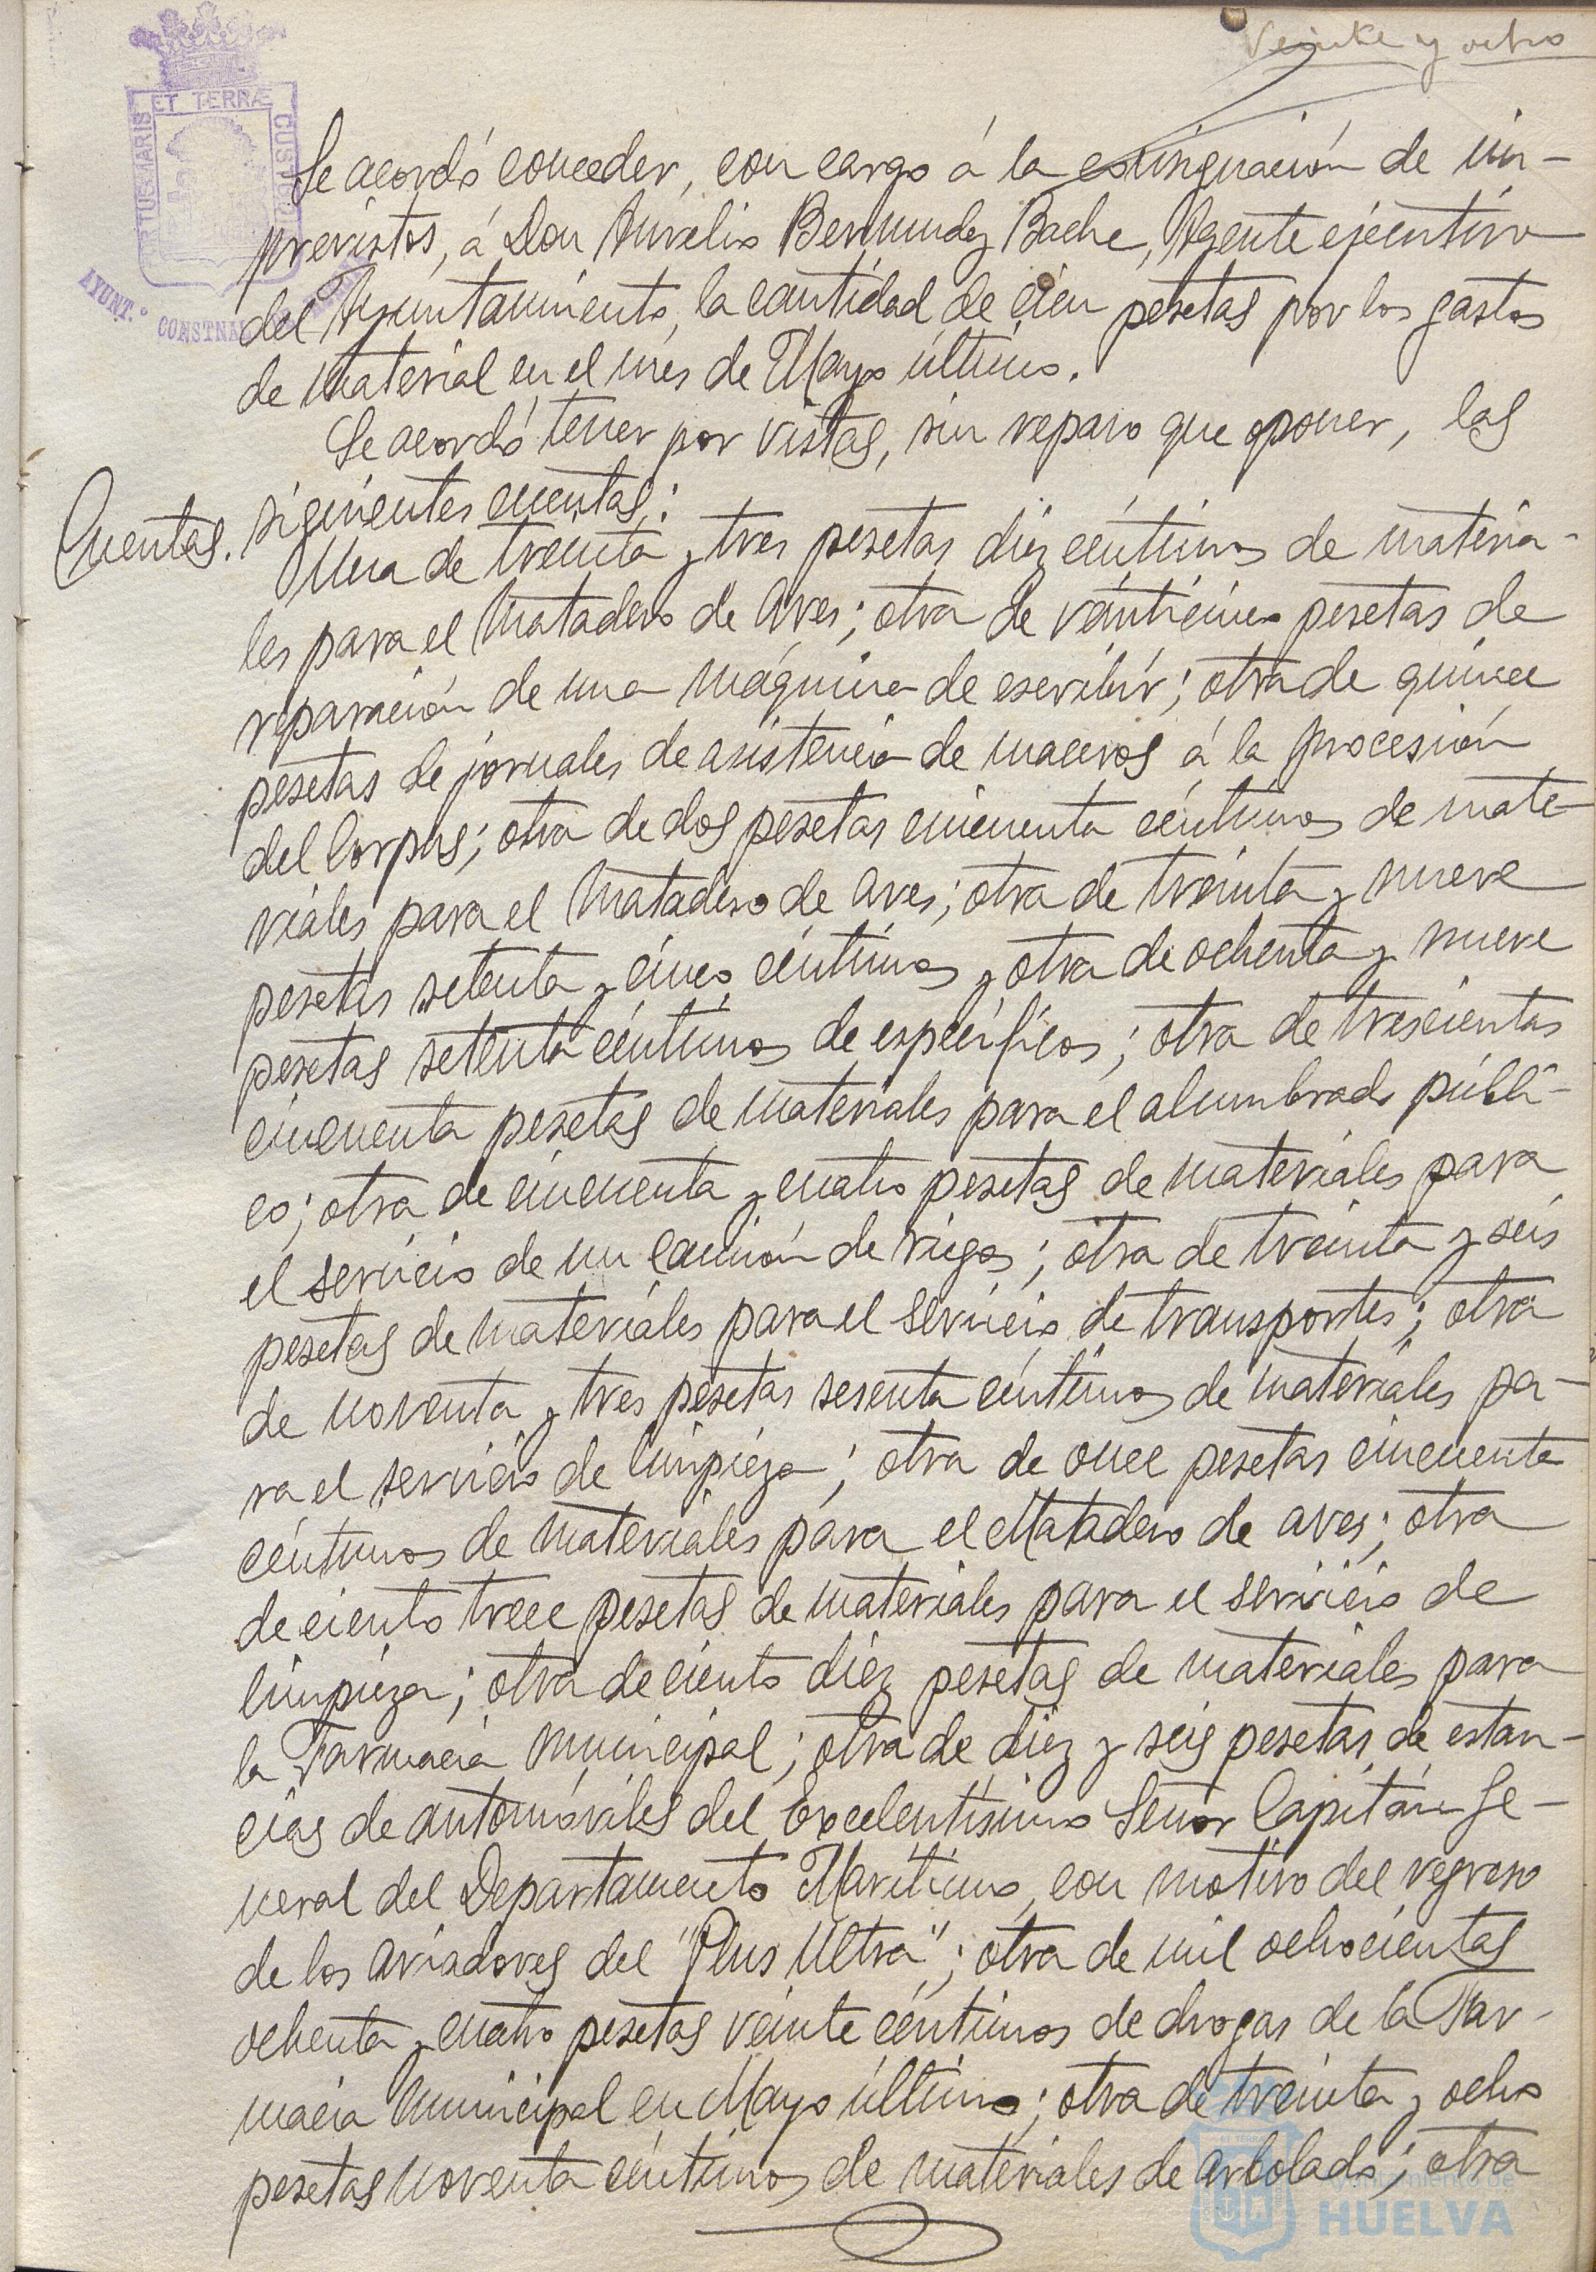 Veinte y ocho
ET TERRÆ
PORTUS MARIS
CUSTODIA
AYUNT.º CONSTNAL
Se acordó conceder, con cargo á la consignación de im-
previstos, á Don Aurelio Bermudez Bache, Agente ejecutivo
del Ayuntamiento, la cantidad de cien pesetas por los gastos
de material en el mes de Mayo último.
Se acordó tener por vistas, sin reparo que oponer, las
Cuentas. siguientes cuentas:
Una de treinta y tres pesetas diez céntimos de materia-
les para el Matadero de Aves; otra de veinticinco pesetas de
reparación de una máquina de escribir; otra de quince
pesetas de jornales de asistencia de maceros á la procesión
del Corpus; otra de dos pesetas cincuenta céntimos de mate-
riales para el Matadero de Aves; otra de treinta y nueve
pesetas setenta y cinco céntimos y otra de ochenta y nueve
pesetas setenta céntimos de específicos; otra de trescientas
cincuenta pesetas de materiales para el alumbrado públi-
co; otra de cincuenta y cuatro pesetas de materiales para
el servicio de un camión de riegos; otra de treinta y seis
pesetas de materiales para el servicio de transportes; otra
de noventa y tres pesetas sesenta céntimos de materiales pa-
ra el servicio de limpieza; otra de once pesetas cincuenta
céntimos de materiales para el Matadero de aves; otra
de ciento trece pesetas de materiales para el servicio de
limpieza; otra de ciento diez pesetas de materiales para
la Farmacia Municipal; otra de diez y seis pesetas de estan-
cias de automóviles del Excelentísimo Señor Capitán Ge-
neral del Departamento Marítimo, con motivo del regreso
de los aviadores del "Plus Ultra"; otra de mil ochocientas
ochenta y cuatro pesetas veinte céntimos de drogas de la Far-
macia Municipal en Mayo último; otra de treinta y ocho
pesetas noventa céntimos de materiales de arbolado; otra
Ayuntamiento de
HUELVA